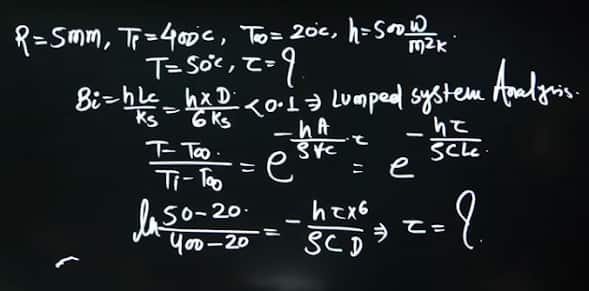 R=5mm, Ti=400°c, T∞=20°c, h=500 W/m²K
T=50°c, τ=?
Bi=hLc/Ks=h×D/6Ks<0.1⇒Lumped system Analysis.
T-T∞/Ti-T∞=e^(-hA/ρVC·τ)=e^(-hτ/ρCLc)
ln 50-20/400-20=-hτ×6/ρCD⇒τ=?